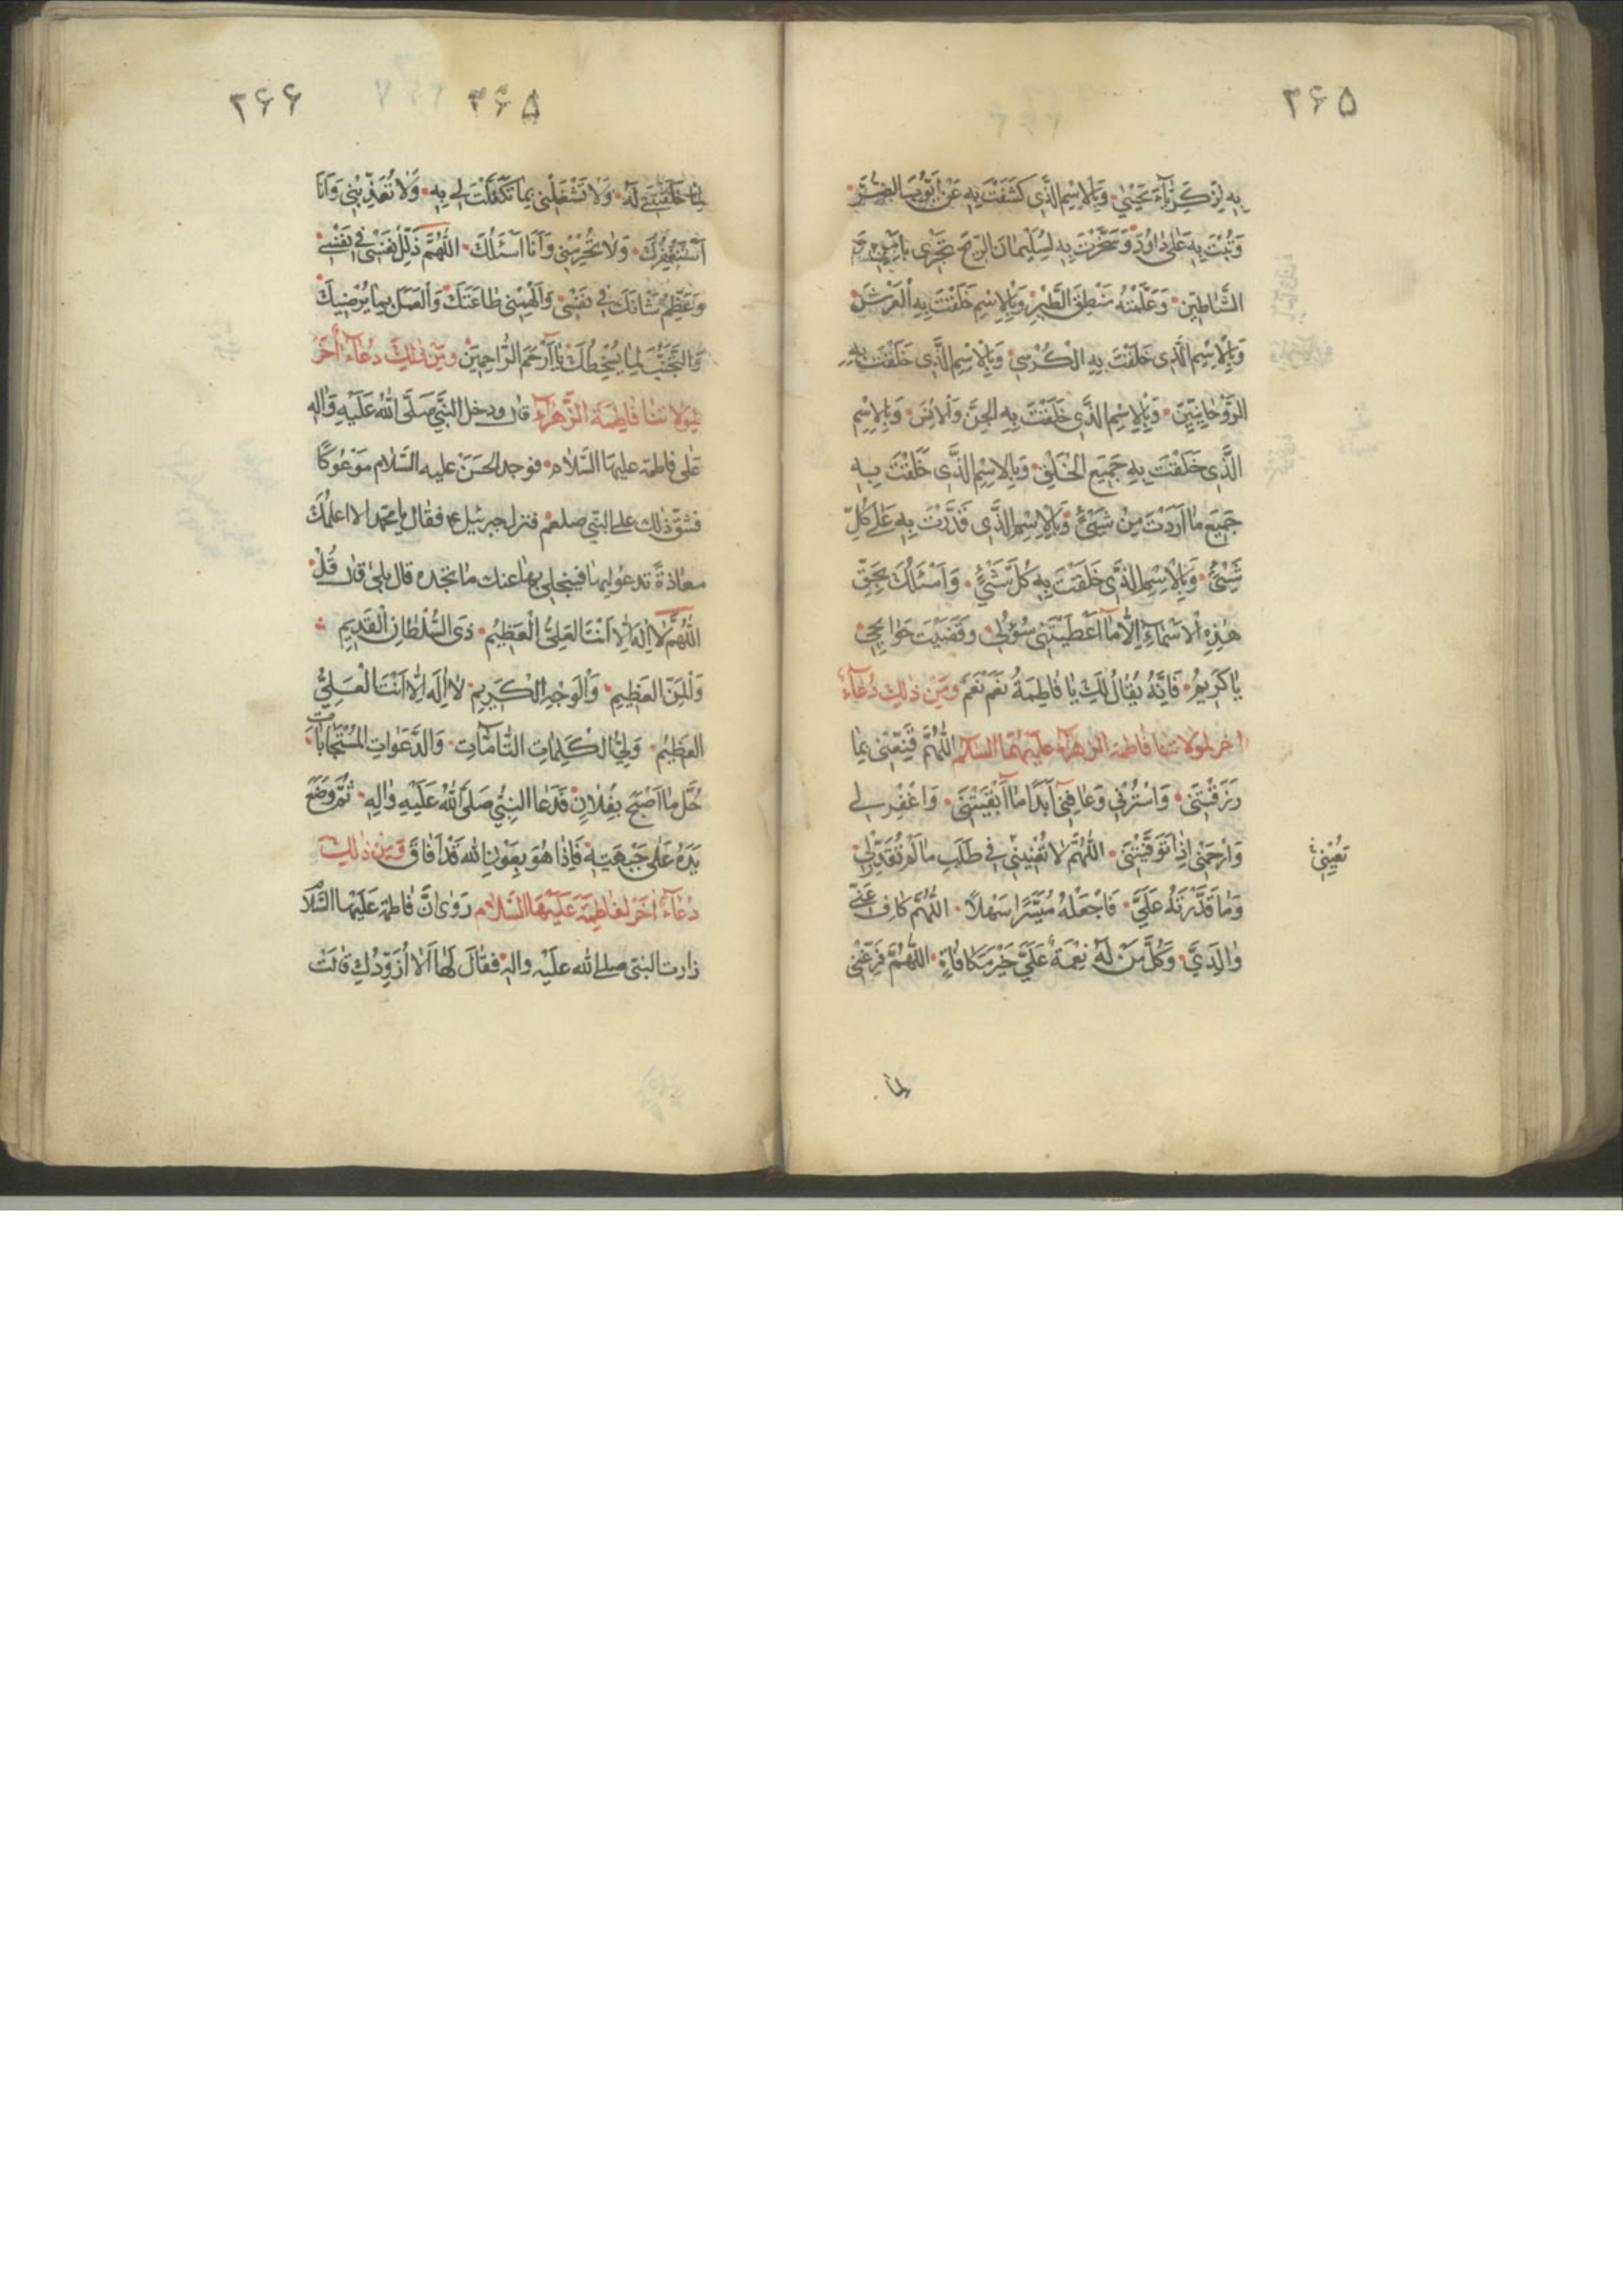 ۲۶۵
بِهِ لِزَكَرِيّٰآءَ يَحْيىٰ وَبِالْاِسْمِ الَّذى كَشَفْتَ بِهِ عَنْ اَيُّوبَ الضُّرَّ
وَتُبْتَ بِهِ عَلىٰ دٰاوُدَ وَسَخَّرْتَ بِهِ لِسُلَيْمٰانَ الرّيحَ تَجْرى بِاَمْرِهِ وَ
الشَّيٰاطينَ وَعَلَّمْتَهُ مَنْطِقَ الطَّيْرِ وَبِالْاِسْمِ خَلَقْتَ بِهِ الْعَرْشَ
وَبِالْاِسْمِ الَّذى خَلَقْتَ بِهِ الْكُرْسِيَّ وَبِالْاِسْمِ الَّذى خَلَقْتَ بِهِ
الرَّوْحٰانِيّينَ وَبِالْاِسْمِ الَّذى خَلَقْتَ بِهِ الْجِنَّ وَالْاِنْسَ وَبِالْاِسْمِ
الَّذى خَلَقْتَ بِهِ جَميعَ الْخَلْقِ وَبِالْاِسْمِ الَّذى خَلَقْتَ بِهِ
جَميعَ مٰا اَرَدْتَ مِنْ شَيْئٍ وَبِالْاِسْمِ الَّذى قَدَرْتَ بِهِ عَلىٰ كُلِّ
شَيْئٍ وَبِالْاِسْمِ الَّذى خَلَقْتَ بِهِ كُلَّ شَيْئٍ وَاَسْئَلُكَ بِحَقِّ
هٰذِهِ الْاَسْمٰآءِ اِلّٰا مٰا اَعْطَيْتَنى سُؤْلى وَقَضَيْتَ حَوٰائِجى
يٰا كَريمُ فَاِنَّهُ يُقٰالُ لَكِ يٰا فٰاطِمَةُ نَعَمْ نَعَمْ وَمِنْ ذٰلِكَ دُعٰآءٌ
اخر لمولاتنا فاطمة الزهراء عليها السلام اَللّٰهُمَّ قَنِّعْنى بِمٰا
رَزَقْتَنى وَاسْتُرْنى وَعٰافِنى اَبَدًا مٰا اَبْقَيْتَنى وَاغْفِرْ لى
وَارْحَمْنى اِذٰا تَوَفَّيْتَنى اَللّٰهُمَّ لٰا تُعْنِنى فى طَلَبِ مٰا لَمْ تُقَدِّرْ لى
تُعْيِنى
وَمٰا قَدَّرْتَهُ عَلَيَّ فَاجْعَلْهُ مُيَسَّرًا سَهْلًا اَللّٰهُمَّ كٰافِ عَنّى
وٰالِدَيَّ وَكُلَّ مَنْ لَهُ نِعْمَةٌ عَلَيَّ خَيْرَ مُكٰافٰاةٍ اَللّٰهُمَّ فَرِّغْنى
لما
۲۶۶
۳۶۵
لِمٰا خَلَقْتَنى لَهُ وَلٰا تَشْغَلْنى بِمٰا تَكَفَّلْتَ لى بِهِ وَلٰا تُعَذِّبْنى وَاَنَا
اَسْتَغْفِرُكَ وَلٰا تَحْرِمْنى وَاَنَا اَسْئَلُكَ اَللّٰهُمَّ ذَلِّلْ نَفْسى فى نَفْسى
وَعَظِّمْ شَأْنَكَ فى نَفْسى وَاَلْهِمْنى طٰاعَتَكَ وَالْعَمَلَ بِمٰا يُرْضيكَ
وَالتَّجَنُّبَ لِمٰا يُسْخِطُكَ يٰا اَرْحَمَ الرّٰاحِمينَ وَمِنْ ذٰلِكَ دُعٰآءٌ اٰخَرُ
لِمَوْلاتِنٰا فٰاطِمَةَ الزَّهْرٰآءِ قال ودخل النَّبِيُّ صَلَّى اللهُ عَلَيْهِ وَاٰلِهِ
عَلىٰ فاطمة عليها السَّلٰام فوجد الحَسَنَ عليه السَّلام مَوْعُوكًا
فشقّ ذٰلك على النّبى صلعم فنزل جبرئيل ع فقال يا محمد الا اعلّمك
معاذةً تدعو بها فينجلى بها عنك ما تجده قال بلى قال قُلْ
اَللّٰهُمَّ لٰا اِلٰهَ اِلّٰا اَنْتَ الْعَلِيُّ الْعَظيمُ ذى السُّلْطٰانِ الْقَديمِ
وَالْمَنِّ الْعَظيمِ وَالْوَجْهِ الْكَريمِ لٰا اِلٰهَ اِلّٰا اَنْتَ الْعَلِيُّ
الْعَظيمُ وَلِيُّ الْكَلِمٰاتِ التّٰامّٰاتِ وَالدَّعَوٰاتِ الْمُسْتَجٰابٰاتِ
حُلَّ مٰا اَصْبَحَ بِفُلٰانٍ فَدَعَا النَّبِيُّ صَلَّى اللهُ عَلَيْهِ وَاٰلِهِ ثُمَّ وَضَعَ
يَدَهُ عَلىٰ جَبْهَتِهِ فَاِذٰا هُوَ بِعَوْنِ اللهِ قَدْ اَفٰاقَ وَمِنْ ذٰلِكَ
دُعٰآءٌ اٰخَرُ لِفٰاطِمَةَ عَلَيْهَا السَّلٰام رَوٰى اَنَّ فاطِمَةَ عَلَيْهَا السَّلٰا
زارت النبىّ صلى الله عليه واله فقالَ لَهٰا اَلٰا اُزَوِّدُكِ قٰالَتْ